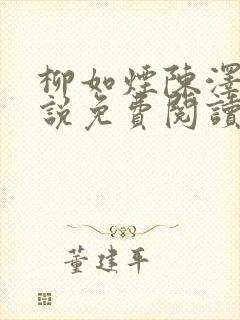 柳如煙陳澤
說免費閱讀
董建平